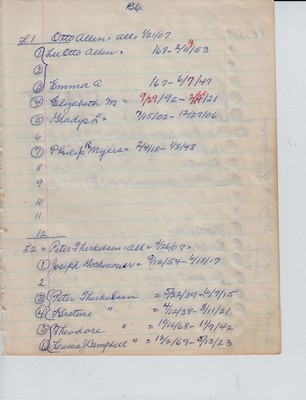 P.6.
L1 Otto Allen = all = 4/21/07
① Lee Otto Allen = 167 - 2/19/53
②
③ Emma A 167 - 6/7/47
④ Elizabeth M = 9/29/92 - 2/21
⑤ Gladys L = 7/15/02 - 12/27/06
6
⑦ Philip R Myers = 2/4/18 - 1/5/48
8
9
10
11
12
L2 = Peter Therkelsen = all = 4/26/07
① Joseph = 9/12/54 - 6/18/17
2
③ Peter Therkelsen = 5/22/39 - 6/7/15
④ Kirstine " = 4/12/38 - 9/11/21
⑤ Theodore " = 10/16/68 - 11/9/42
⑥ Campbell " = 12/2/69 - 5/13/23